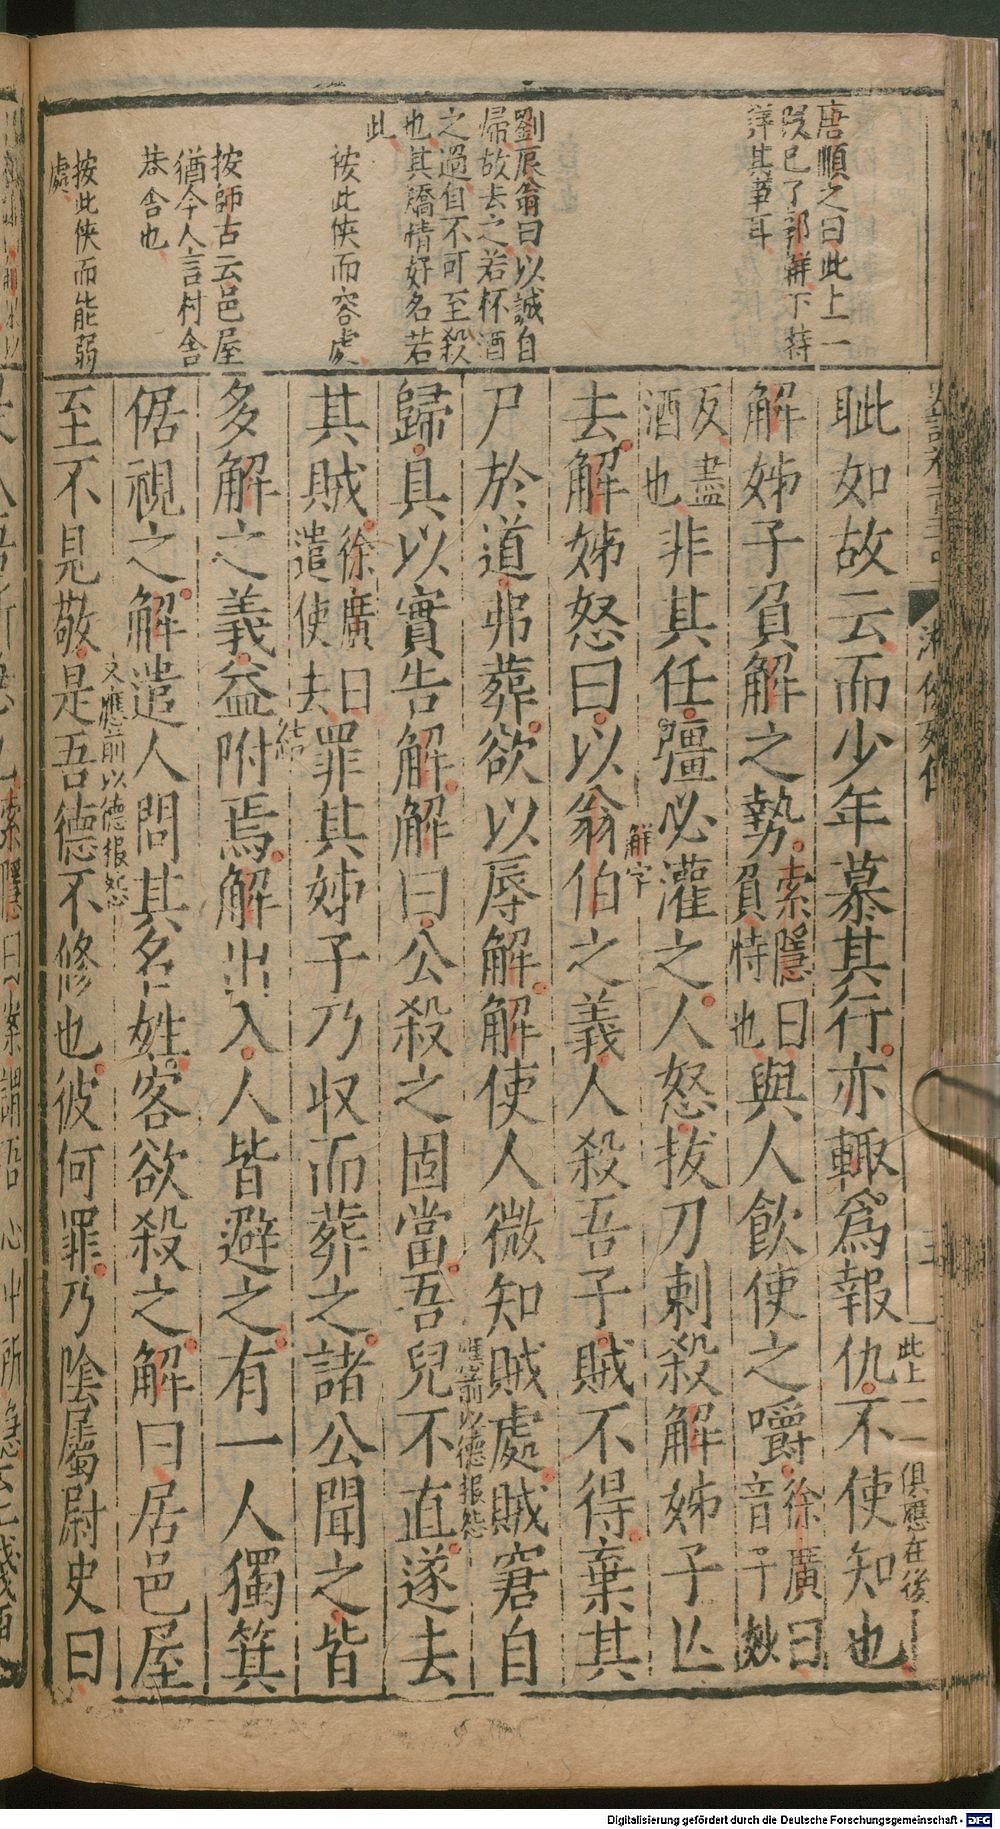 唐順之曰此上一
段已了郭解下特
詳其事耳
劉辰翁曰以誠自
歸故去之若杯酒
之過自不可至殺
也其矯情好名若
此
按此俠而容處
按師古云邑屋
猶今人言村舍
巷舍也
按此俠而能弱
處
游俠列傳
此上一一俱應在後
眦如故云而少年慕其行亦輒爲報仇不使知也
解姊子負解之勢索隱曰負恃也與人飲使之嚼徐廣曰音子妙
反盡酒也非其任彊必灌之人怒拔刀刺殺解姊子亾
解字
去解姊怒曰以翁伯之義人殺吾子賊不得棄其
尸於道弗葬欲以辱解解使人微知賊處賊窘自
應前以德報怨
歸具以實告解解曰公殺之固當吾兒不直遂去
其賊徐廣曰遣使去罪其姊子乃収而葬之諸公聞之皆
結
多解之義益附焉解出入人皆避之有一人獨箕
倨視之解遣人問其名姓客欲殺之解曰居邑屋
又應前以德報怨
至不見敬是吾德不修也彼何罪乃陰屬尉史曰
Digitalisierung gefördert durch die Deutsche Forschungsgemeinschaft - DFG